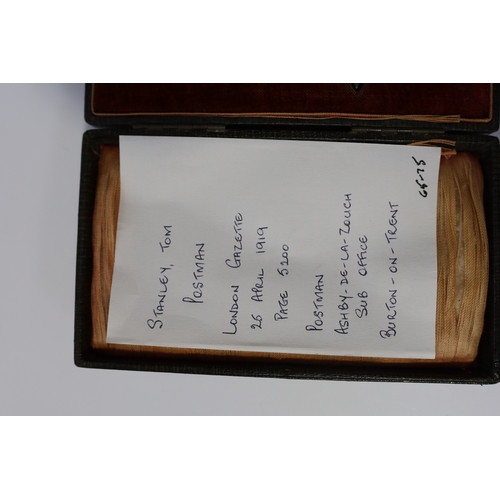 STANLEY, TOM
POSTMAN
LONDON GAZETTE
26 APRIL 1919
PAGE 5200
POSTMAN
ASHBY-DE-LA-ZOUCH
SUB OFFICE
BURTON-ON-TRENT